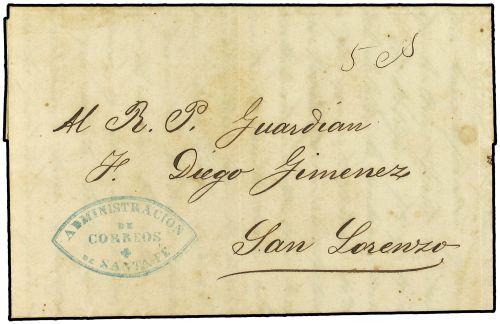 Al R. P. Guardian
F. Diego Gimenez
San Lorenzo
ADMINISTRACION
DE
CORREOS
DE SANTA-FÉ